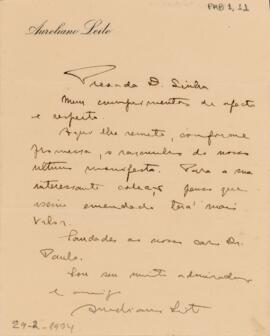 Aureliano Leite
PMB 1, 11
Prezada D. Sinhá
Meus cumprimentos de afecto
e respeito.
Aqui lhe remeto, conforme
promessa, o rascunho do nosso
ultimo manifesto. Para a sua
interessante coleção, penso que
assim emendado terá mais
valor.
Saudades ao nosso caro Dr.
Paulo.
Sou seu muito admirador
e amigo
Aureliano Leite
29-2-1934